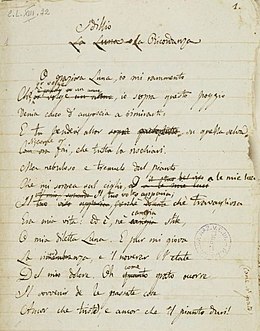 C.L.XIII.22
1.
Idillio
La Luna o la Ricordanza
O graziosa Luna, io mi rammento
Che, or volge l'anno, io sopra questo poggio
Venia carco d'angoscia a rimirarti:
E tu pendevi allor su quella selva
Siccome or fai, che tutta la rischiari.
Ma nebuloso e tremulo dal pianto
Che mi sorgea sul ciglio, a le mie luci
Il tuo viso apparia, che travagliosa
Era mia vita: ed è, nè cangia stile
O mia diletta Luna. E pur mi giova
La ricordanza, e 'l noverar l'etate
Del mio dolore. Oh come grato occorre
Il sovvenir de le passate cose
Ancor che triste, e ancor che il pianto duri!